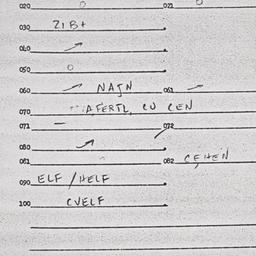 020 021
030 ZIB+
040
050 0
060 NAJN 061
070 AFERTL, CU CEN
071 — 072
080
081 082 CEHEIN
090 ELF / HELF
100 CVELF